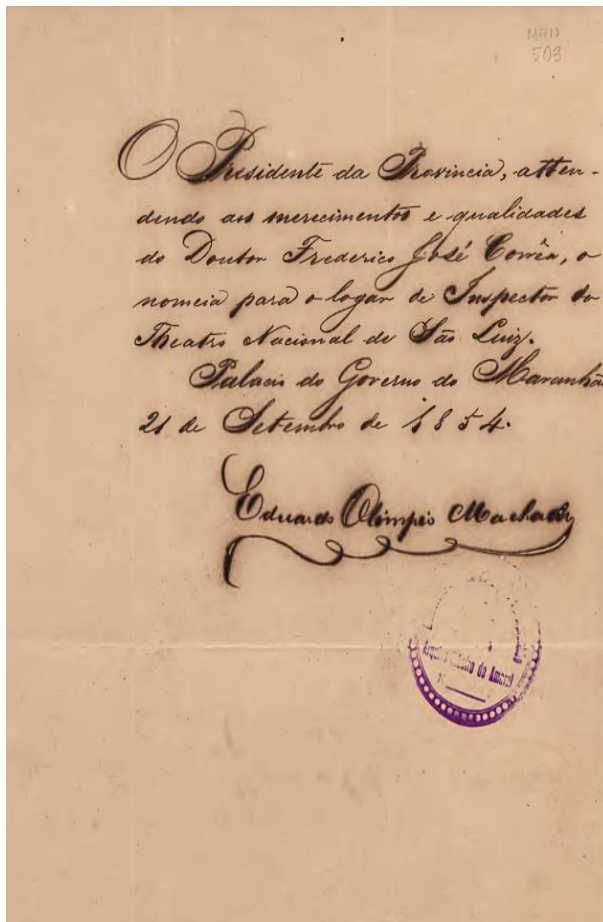 503
O Presidente da Provincia, atten-
dendo aos merecimentos e qualidades
do Doutor Frederico José Corrêa, o
nomeia para o logar de Inspector do
Theatro Nacional de São Luiz.
Palacio do Governo do Maranhão
21 de Setembro de 1854.
Eduardo Olimpio Machado
do Amaral